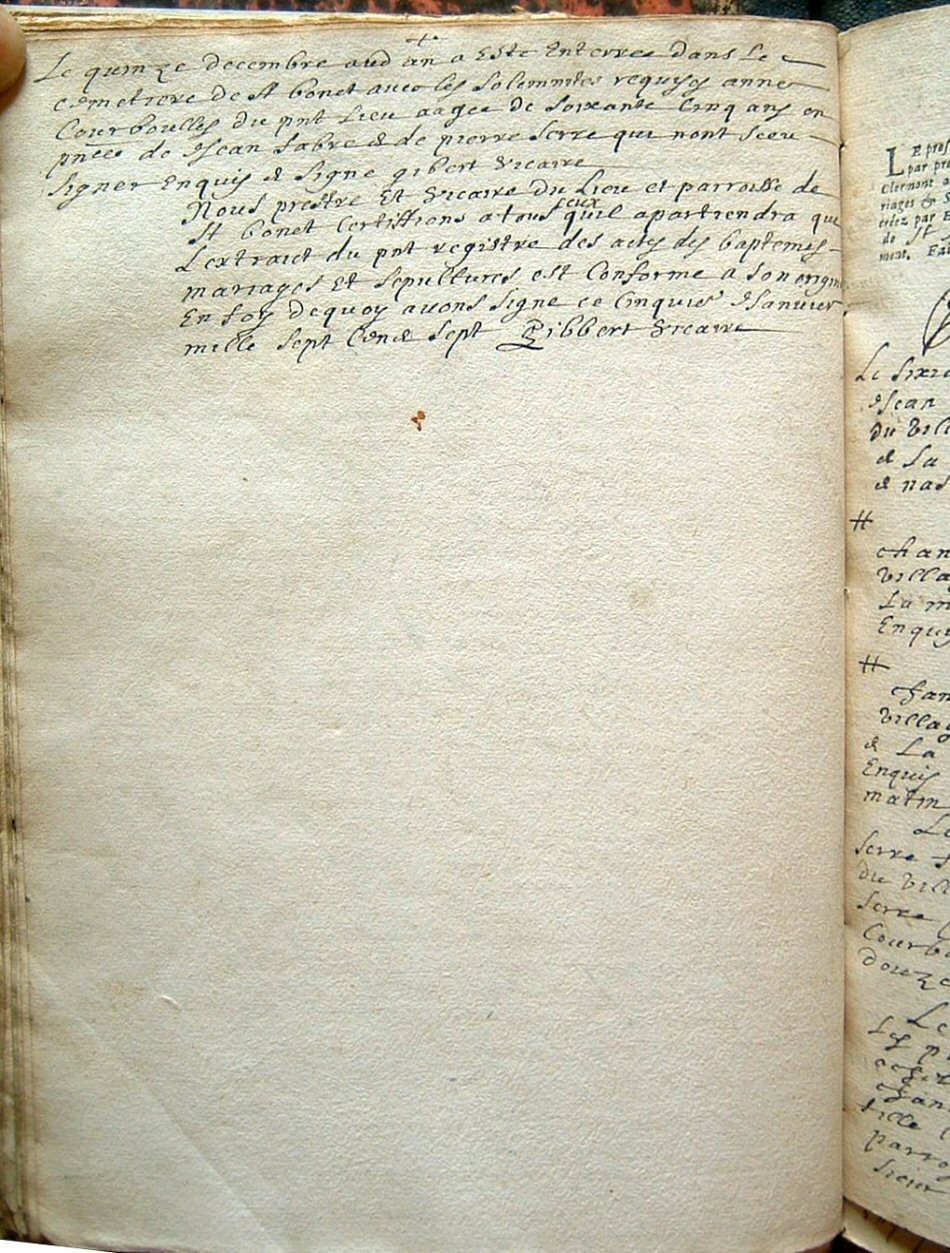 +
Le quinze decembre aud an a Este Enterree dans Le
cemetiere de st bonet auec les solemnites requises anne
Courboulles du pnt Lieu aagee de soixante Cinq ans en
pnce de Jean fabre & de pierre serre qui nont sceu
signer Enquis & signe gibert vicaire
Nous prestre Et vicaire du Lieu et parroisse de
st bonet Certiffions a tous ceux quil apartiendra que
Lextraict du pnt registre des actes des baptemes
mariages Et sepultures est Conforme a son origin
En foy dequoy auons signe ce Cinquie Januier
mille sept Cent sept Gibbert vicaire
LE
par
Clermont
riages & S
de St
mont.
Le
Jean
du vill
& La
& nas
#
chan
villa
La m
Enquis
#
chan
villag
& La
Enquis
matin
Le
serre
du vill
serre
Courbo
douze
Le
Les p
chan
parro
sieur